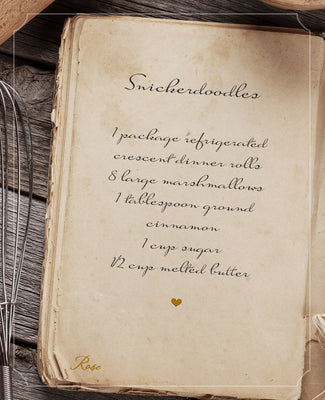 Snickerdoodles
1 package refrigerated
crescent dinner rolls
8 large marshmallows
1 tablespoon ground
cinnamon
1 cup sugar
1/2 cup melted butter
Rose